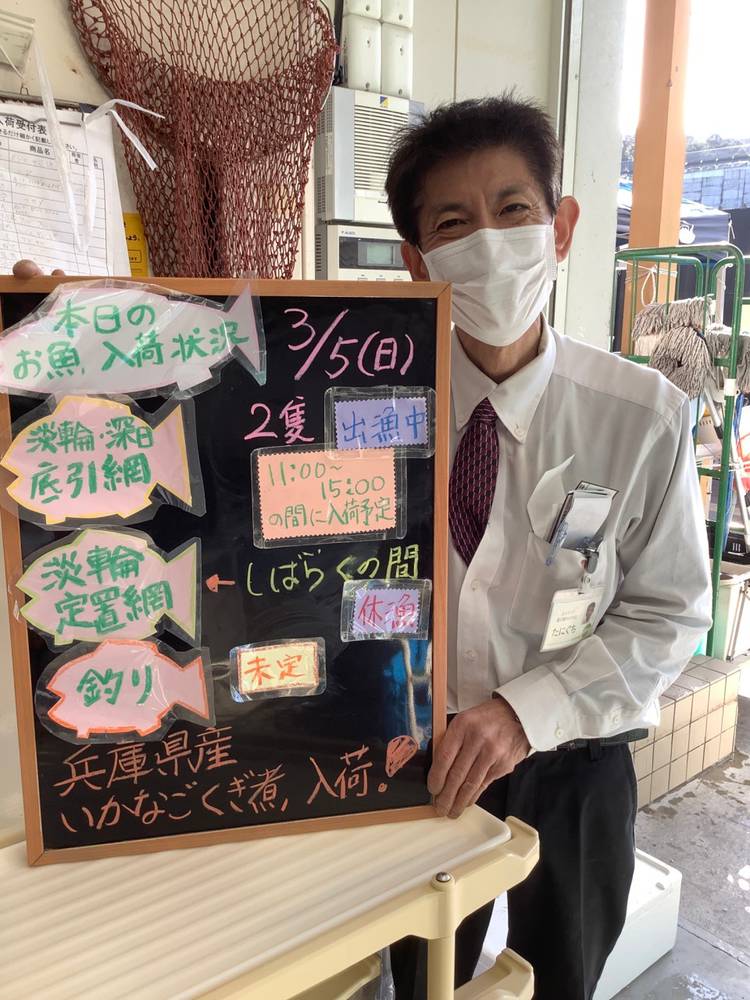 入荷受付表
商品名
本日の
お魚 入荷状況
3/5(日)
淡輪・深日
底引網
2隻
出漁中
11:00~
15:00
の間に入荷予定
淡輪
定置網
←しばらくの間
休漁
釣り
未定
兵庫県産
いかなごくぎ煮、入荷。
たにぐち